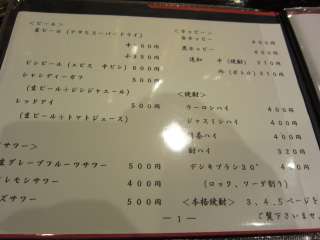 <ビール>
生ビール (アサヒスーパードライ)
中 460円
小 350円
ビンビール (エビス 中ビン) 600円
シャンディーガフ 500円
(生ビール+ジンジャエール)
レッドアイ 500円
(生ビール+トマトジュース)
サワー>
生グレープフルーツサワー 500円
レモンサワー 400円
ズサワー 500円
<ホッピー>
白ホッピー 400円
黒ホッピー 400円
追加 中 (焼酎) 250円
<焼酎>
ウーロンハイ 400円
ジャスミンハイ 400円
緑茶ハイ 400円
酎ハイ 320円
(ロック、ソーダ割り)
<本格焼酎> 3、4、5ページを
ご覧下さいませ
— 1 —